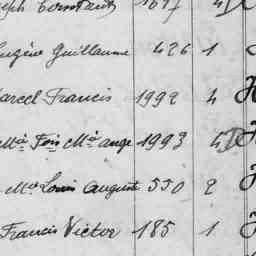 eph Constant 1617 4
Eugène Guillaume 426 1
Marcel Francis 1992 4
Mie Fois Mie ange 1993 4
Mie Louis August 550 2
Francis Victor 185 1